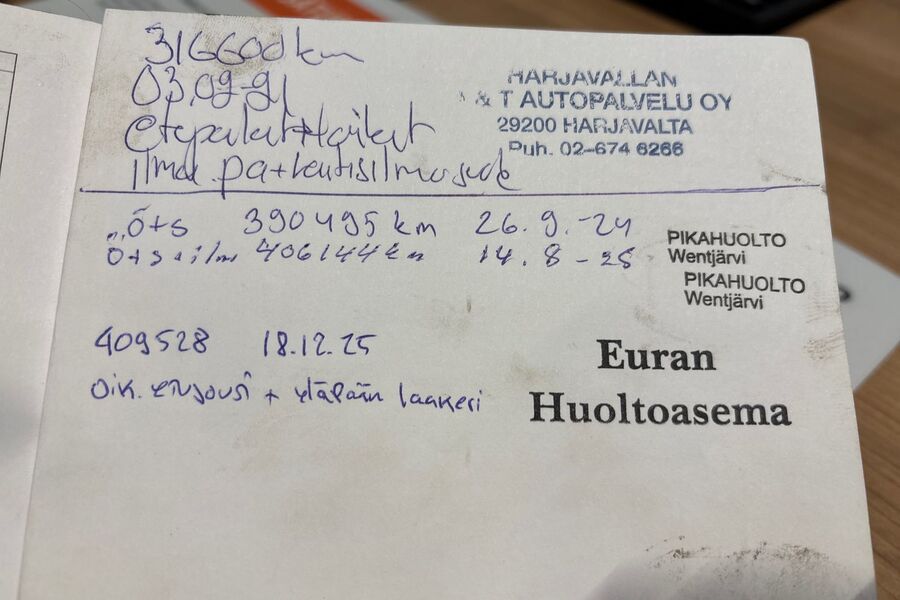 316600 km
03.09-21
HARJAVALLAN
& T AUTOPALVELU OY
29200 HARJAVALTA
Puh. 02-674 6266
etupalat+laikat
ilma pa+raitisilmasuod
öts 390495 km 26.9.-24
öts+ilm 406144 km 14.8-25
PIKAHUOLTO
Wentjärvi
PIKAHUOLTO
Wentjärvi
409528 18.12.25
Oik. etujousi + yläpään laakeri
Euran
Huoltoasema